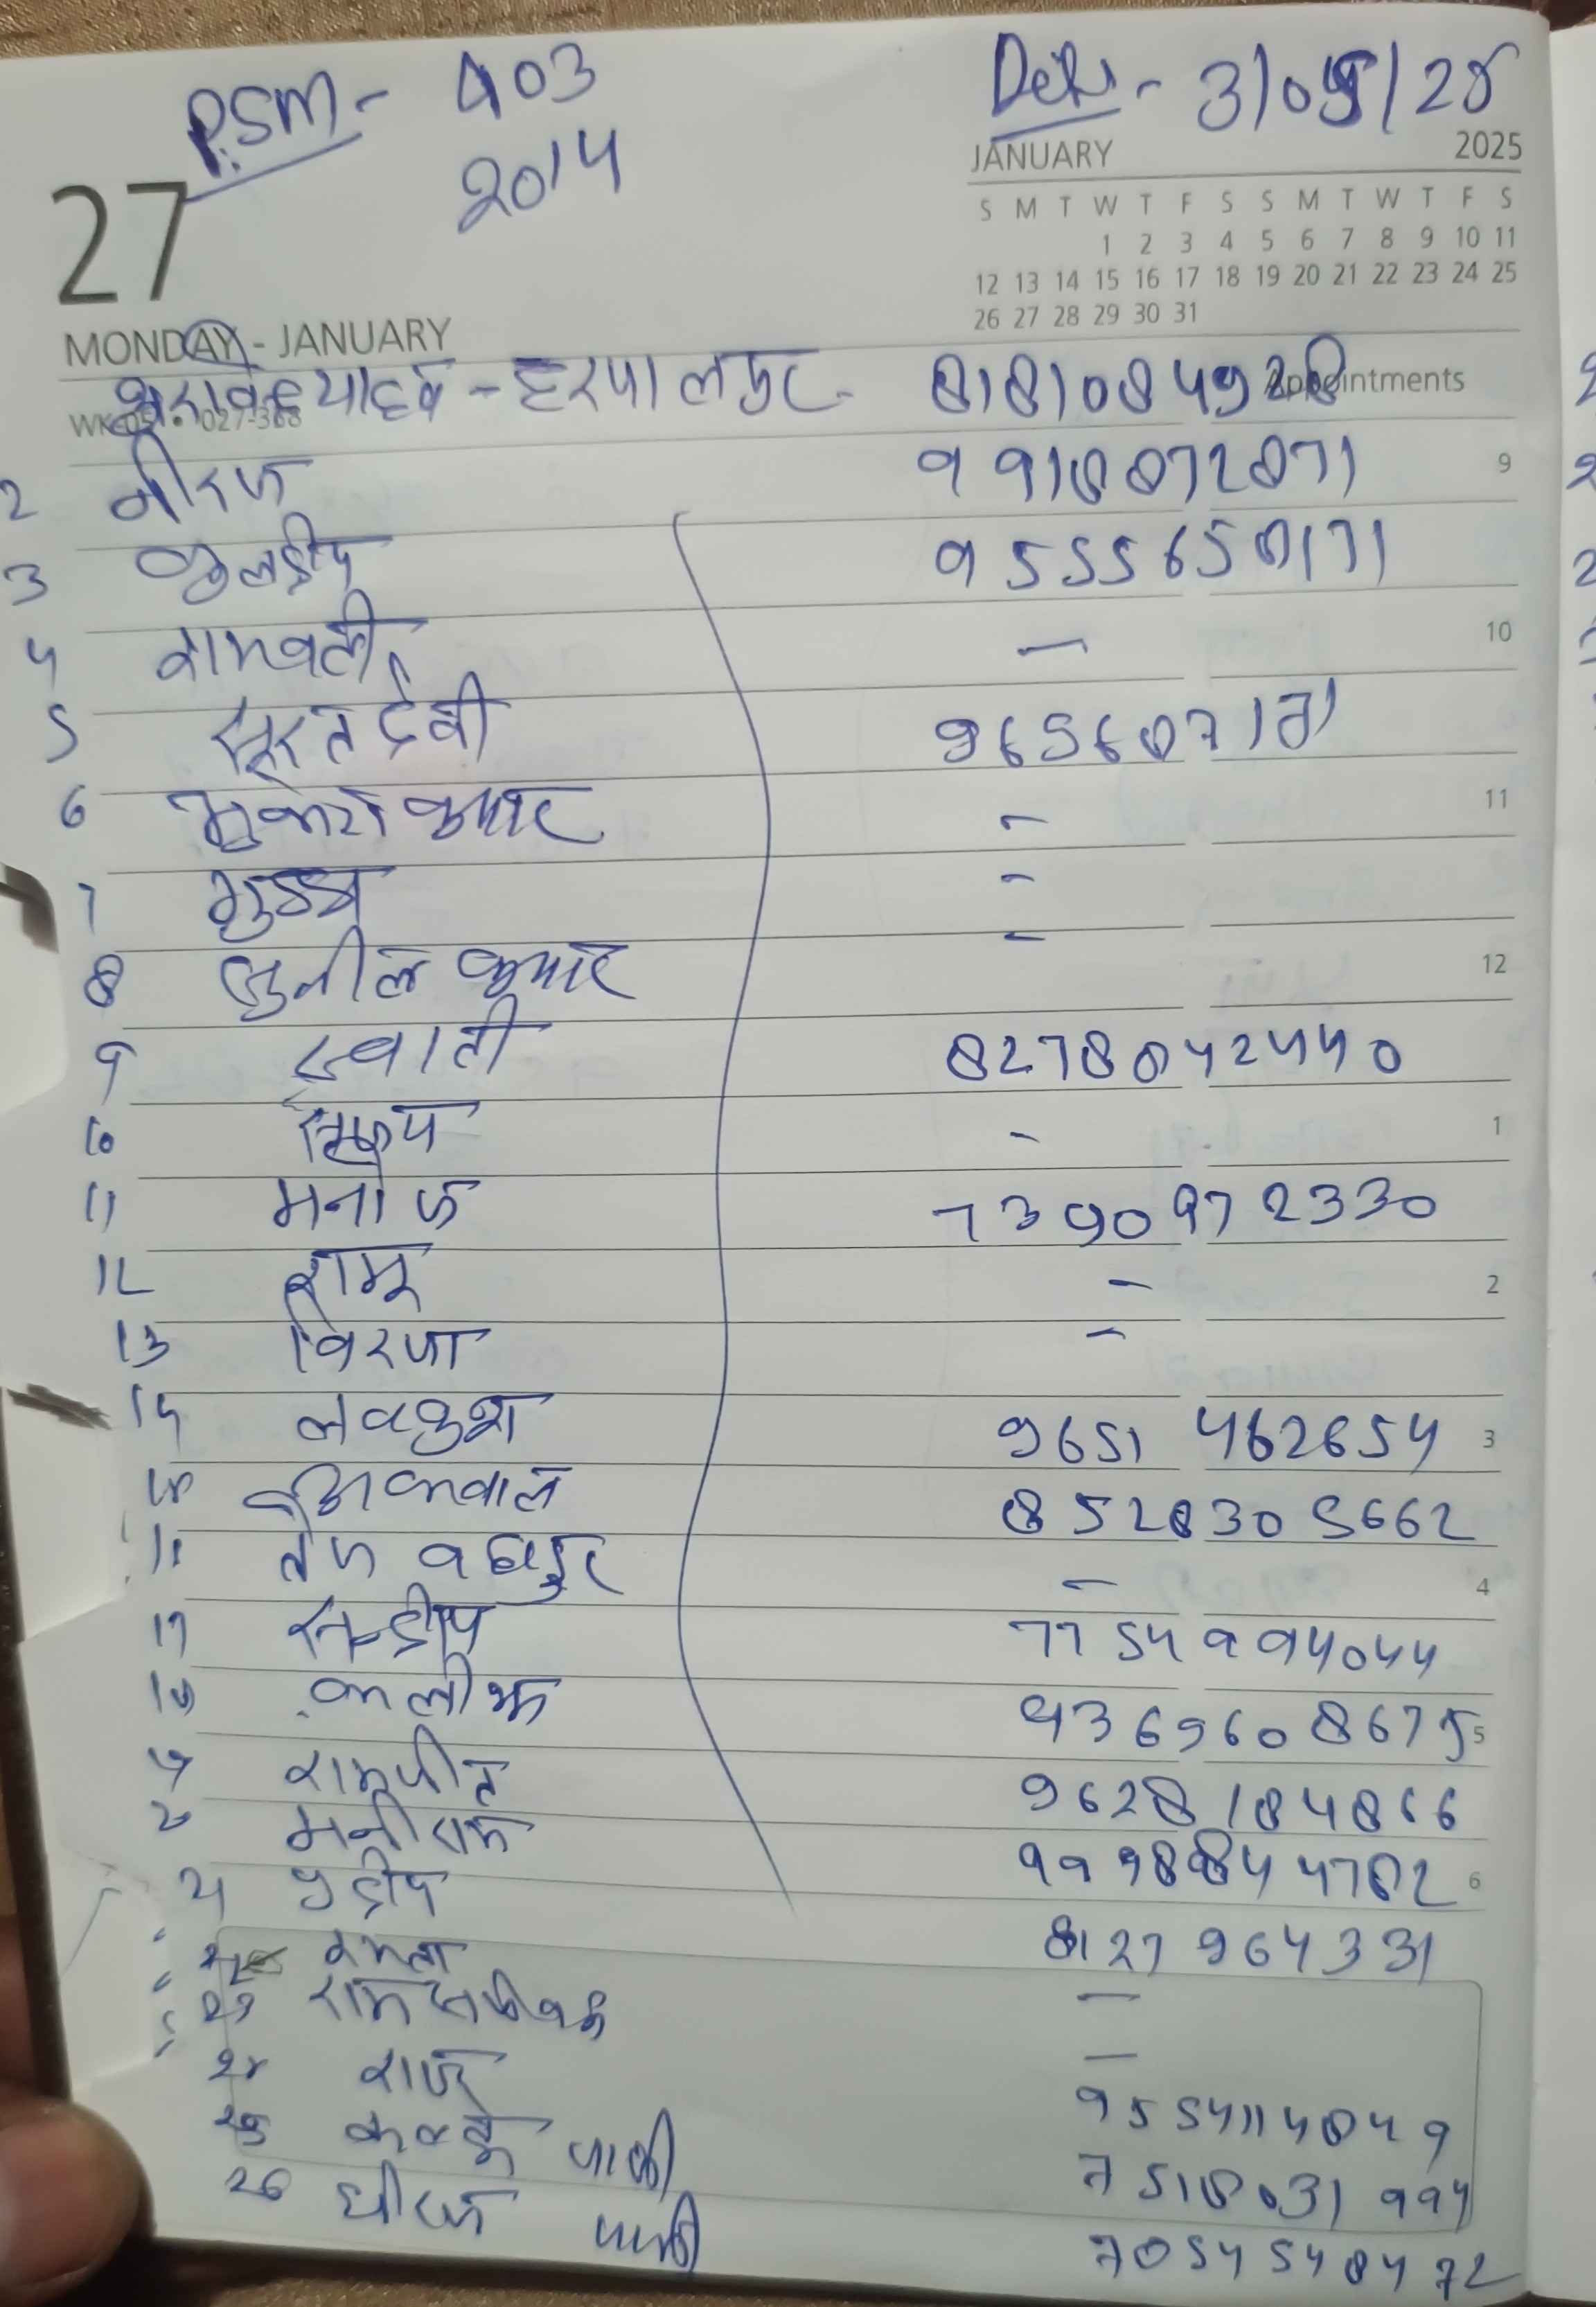 P.SM - 403
2014
Date - 3/05/25
JANUARY 2025
S M T W T F S S M T W T F S
1 2 3 4 5 6 7 8 9 10 11
12 13 14 15 16 17 18 19 20 21 22 23 24 25
26 27 28 29 30 31
27
MONDAY - JANUARY
WK 05 • 027-338
Appointments
यादव - हरपालपुर - 8181084928
2 नीरज 9918072071 9
3 कुलदीप 9555650171
4 रामवती — 10
5 सूरत देवी 9656071171
6 मुकेश कुमार - 11
7 गुड्डू -
8 सुनील कुमार - 12
9 स्वाती 82780424440
10 -  1
11 मनोज 73909972330
12 रामू - 2
13 विरजा -
14 लवकुश 9651 462654 3
15 8528305662
16 तेज बहादुर - 4
17 सन्दीप 7754994044
18 9369608675 5
19 रामजीत 9628184866
20 मनीराम 9998844782 6
21 प्रदीप 8127964331
22 कमला —
23 रामसजीवन —
24 राजू 9554114849
25 पाली 7518031994
26 धीरज पाली 7054548472